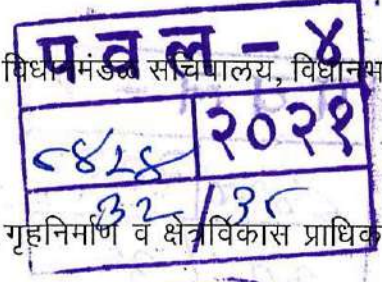 पवल - ४
विधानमंडळ सचिवालय, विधानभ
२०२१
३२/३८
गृहनिर्माण व क्षेत्रविकास प्राधिक